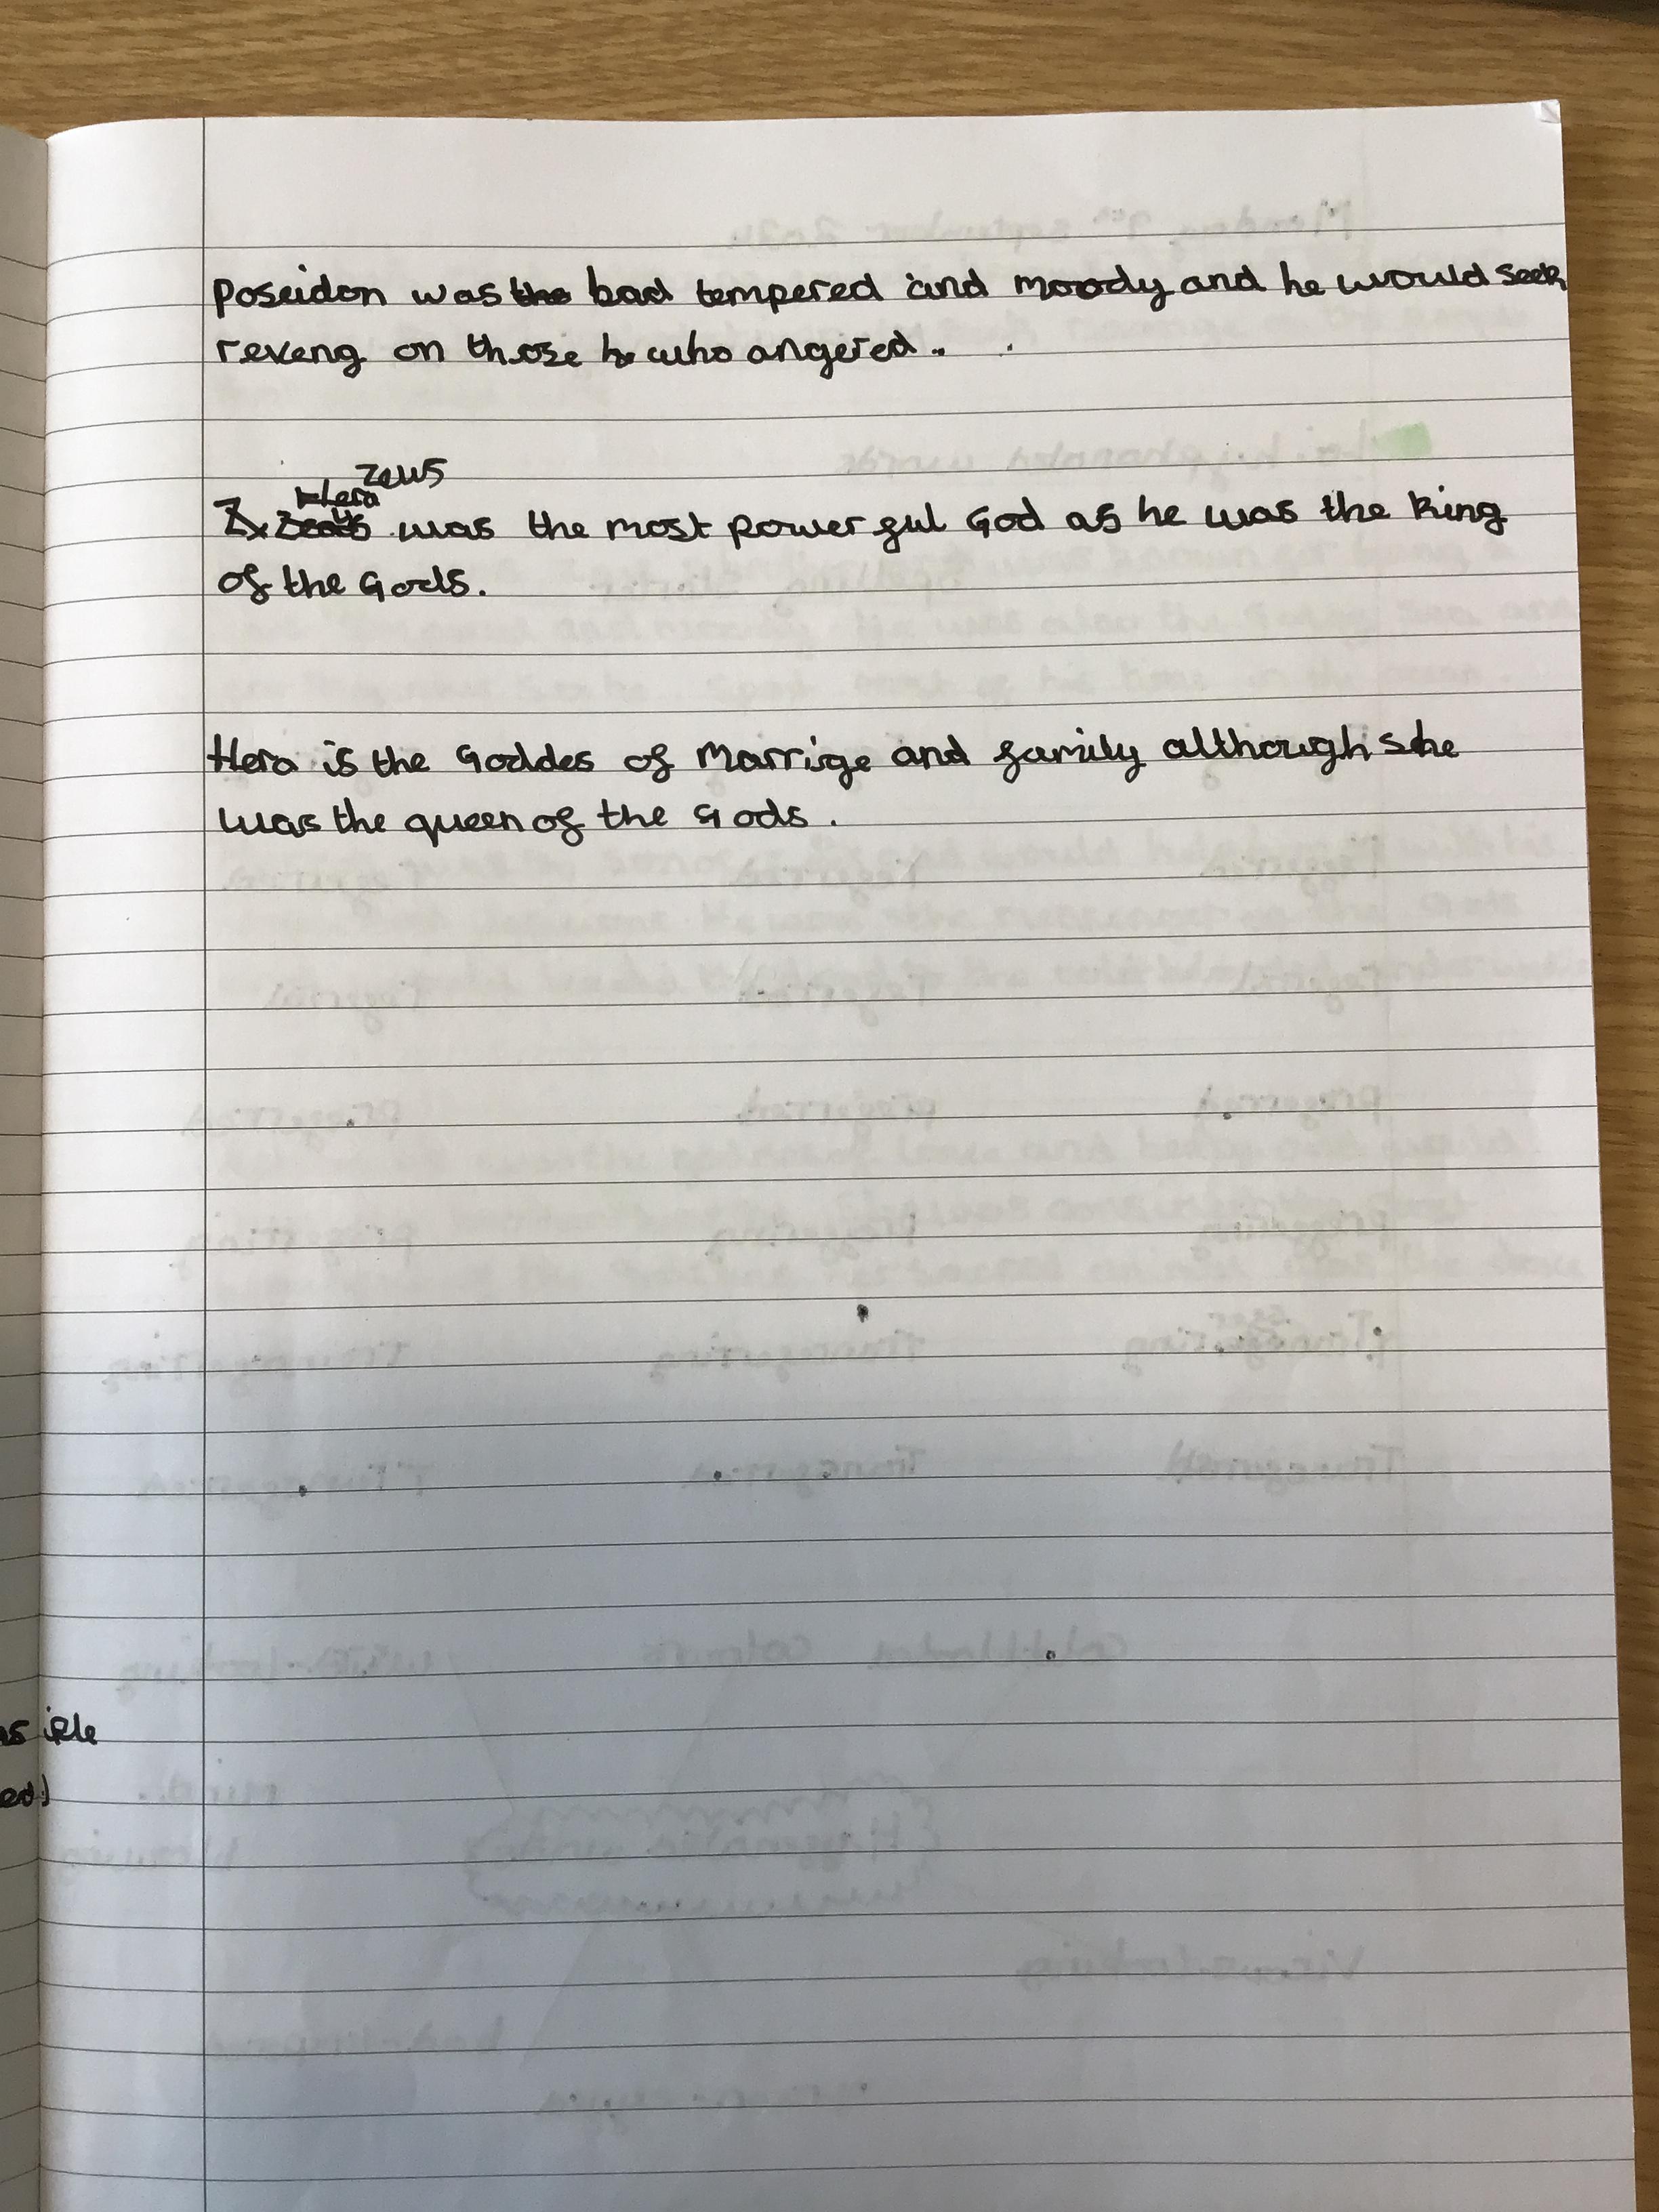 Poseidon was the bad tempered and moody and he would seek
reveng on those he who angered.
Zeus
Hera
was the most powerful God as he was the king
of the Gods.
Hera is the Goddes of Marrige and family although she
was the queen of the Gods.